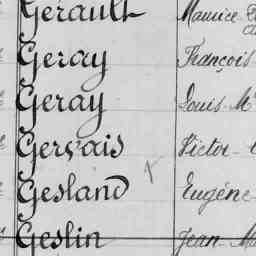 Gérault Maurice
Geray François
Geray Louis M
Gervais Victor
Gesland Eugène
Geslin Jean Ma